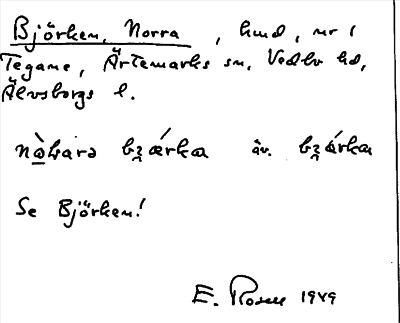 Björken, Norra, hmd, nr 1
Tegane, Ärtemarks sn, Vedbo hd,
Älvsborgs l.
nə̀ḷarə bʒærkæ äv. bʒárkæ
Se Björken!
E. Rosen 1949